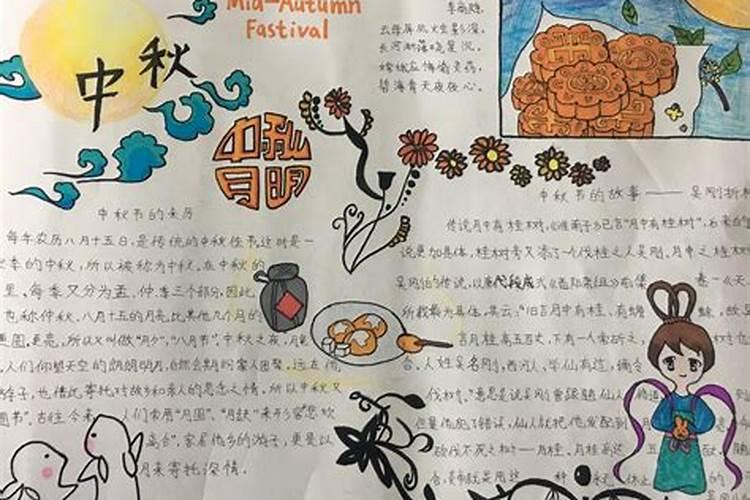 中秋
Mid-Autumn
Fastival
李商隐
云母屏风烛影深,
长河渐落晓星沉。
嫦娥应悔偷灵药,
碧海青天夜夜心。
中秋月明
中秋节的来历
每年农历八月十五日,是传统的中秋佳节。这时是一
季的中秋,所以被称为中秋。在中秋的
里,每季又分为孟、仲、季三个部分,因此
也称仲秋。八月十五的月亮比其他几个月的
圆,更亮,所以又叫做“月夕”,“八月节”。中秋之夜,月
人们仰望天空的朗朗明月,自然会期盼家人团聚。远在他
游子,也借此寄托对故乡和亲人的思念之情。所以中秋又
圆节”。古往今来 人们常用“月圆”、“月缺”来形容“悲欢
离合”,客居他乡的游子,更是以
月来寄托深情。
中秋节的故事——吴刚折桂
传说月中有桂树,《淮南子》已言“月中有桂树”,
说更加具体,桂树旁又添了一个伐桂之人吴刚。月中之桂树
吴刚的传说,以唐代段成式《酉阳杂俎》前集 卷一《天
所载最为具体,其云:“旧言月中有桂,有蟾
言月桂高五百丈,下有一人常斫之,
合。人姓吴名刚,西河人,学仙有过,谪令
伐树。”意思是说吴刚曾跟随仙人
但是他犯了错误,仙人就把他发配到
砍伐不死之树——月桂。月桂高达 五
合,